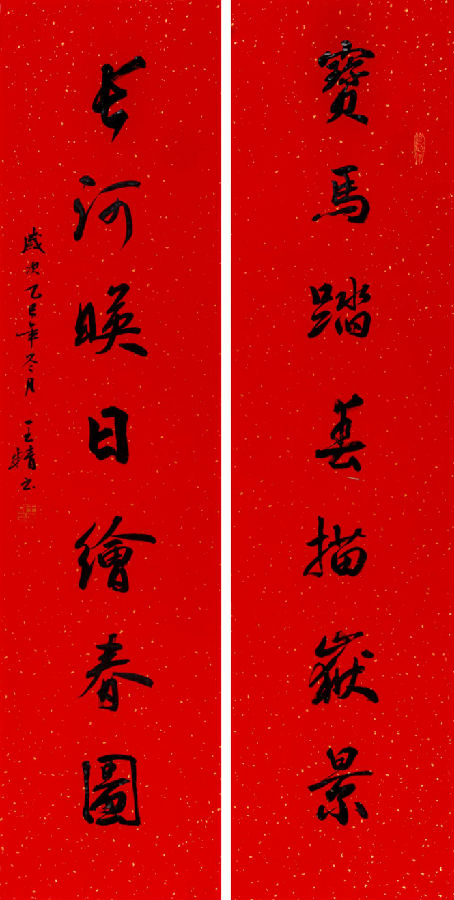 寶馬踏雲描嶽景
長河暎日繪春圖
歲次乙巳年冬月 王婧书